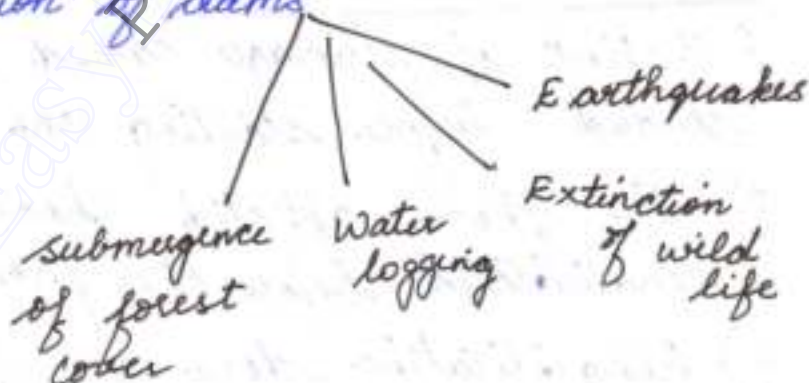 of dams
Earthquakes
Extinction
of wild
life
Water
logging
submergence
of forest
cover
Easy